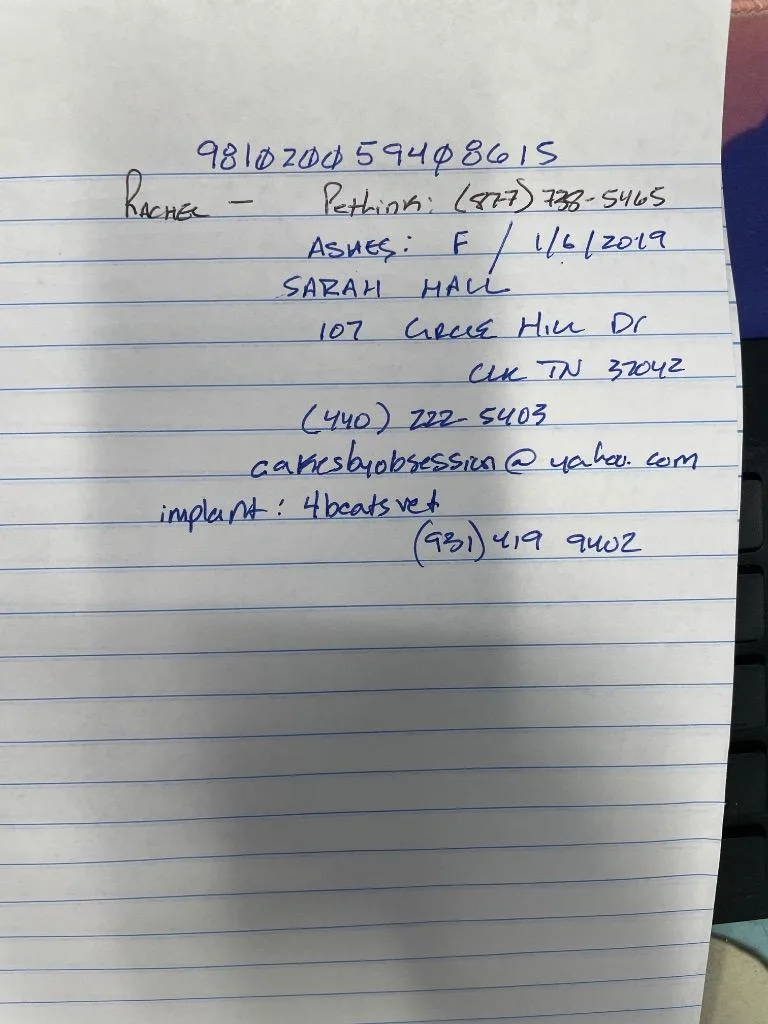 981020059408615
RACHEL - Pethink: (877) 738-5465
ASHES: F / 1/6/2019
SARAH HALL
107 CIRCLE HILL Dr
CLK TN 37042
(440) 222-5403
cakesbyobsession@yahoo.com
implant: 4beatsvet
(931) 419 9402